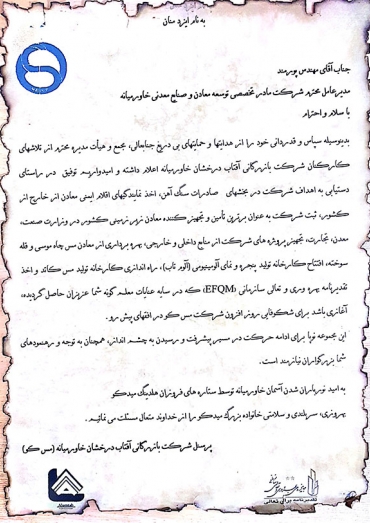 به نام ایزد منان
جناب آقای مهندس پورمند
مدیرعامل محترم شرکت مادر تخصصی توسعه معادن و صنایع معدنی خاورمیانه
با سلام و احترام
بدینوسیله سپاس و قدردانی خود را از هدایتها و حمایتهای بی دریغ جنابعالی، مجمع و هیأت مدیره محترم از تلاشهای
کارکنان شرکت بازرگانی آفتاب درخشان خاورمیانه اعلام داشته و امیدواریم توفیق در راستای
دستیابی به اهداف شرکت در بخشهای صادرات سنگ آهن، اخذ نمایندگیهای اقلام ایمنی معادن از خارج از
کشور، ثبت شرکت به عنوان برترین تأمین و تجهیز کننده معادن زیر زمینی کشور در وزارت صنعت،
معدن، تجارت، تجهیز پروژه های شرکت از منابع داخلی و خارجی، بهره برداری از معادن مس چاه موسی و قله
سوخته، افتتاح کارخانه تولید پنجره و نمای آلومینیومی (آلوم تاب)، راه اندازی کارخانه تولید مس کاتد و اخذ
تقدیرنامه بهره وری و تعالی سازمانی (EFQM) که در سایه عنایات معلم گونه شما عزیزان حاصل گردیده،
آغازی باشد برای شکوفایی روز افزون شرکت مس کو در افقهای پیش رو.
این مجموعه نوپا برای ادامه حرکت در مسیر پیشرفت و رسیدن به چشم انداز، همچنان به توجه و رهنمودهای
شما بزرگواران نیازمند است.
به امید نورباران شدن آسمان خاورمیانه توسط ستاره های فروزان هلدینگ میدکو
بهروزی، سربلندی و سلامتی خانواده بزرگ میدکو را از خداوند متعال مسئلت می نمائیم.
پرسنل شرکت بازرگانی آفتاب درخشان خاورمیانه (مس کو)
تقدیرنامه برای تعالی